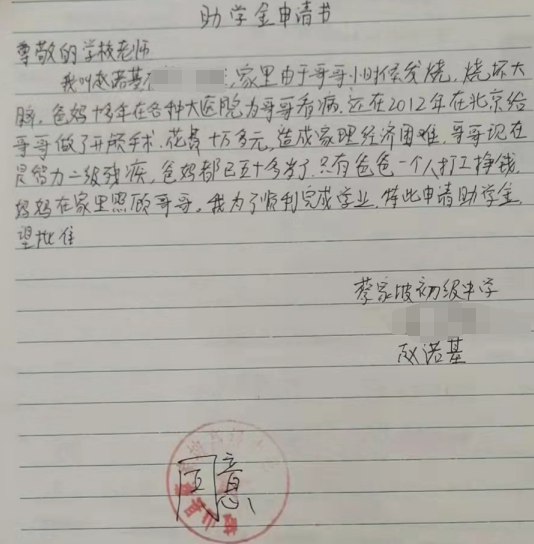 助学金申请书
尊敬的学校老师
我叫赵诺基 家里由于哥哥小时候发烧，烧坏大
脑，爸妈十多年在各种大医院为哥哥看病，远在2012年在北京给
哥哥做了开颅手术，花费十万多元，造成家理经济困难，哥哥现在
是智力二级残疾，爸妈都已五十多岁了，只有爸爸一个人打工挣钱，
妈妈在家里照顾哥哥，我为了顺利完成学业，特此申请助学金，
望批准
蔡家坡初级中学
赵诺基
同意